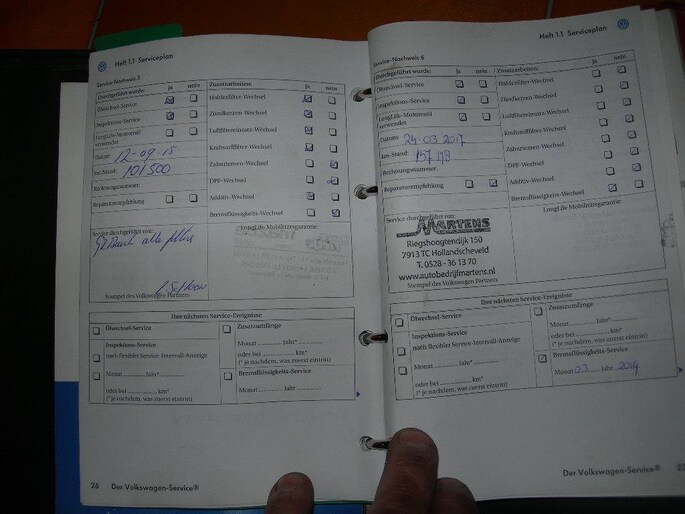 Heft 1.1 Serviceplan
Service-Nachweis 5
Durchgeführt wurde: Ja nein
Ölwechsel-Service
Inspektions-Service
LongLife-Motoröl verwendet
Datum: 12-09-15
km-Stand: 101500
Rechnungsnummer:
Reparaturempfehlung
Zusatzarbeiten: Ja nein
Zündkerzen-Wechsel
Luftfiltereinsatz-Wechsel
Kraftstofffilter-Wechsel
Zahnriemen-Wechsel
DPF-Wechsel
Additiv-Wechsel
Bremsflüssigkeits-Wechsel
Service durchgeführt von:
LongLife Mobilitätsgarantie
alle
Stempel des Volkswagen Partners
Ihre nächsten Service-Ereignisse
Ölwechsel-Service
Inspektions-Service
nach flexibler Service-Intervall-Anzeige
Monat ........ Jahr*
oder bei ........ km*
(* je nachdem, was zuerst eintritt)
Zusatzumfänge
Monat ........ Jahr*
oder bei ........ km*
(* je nachdem, was zuerst eintritt)
Bremsflüssigkeits-Service
Monat ........ Jahr
26 Der Volkswagen-Service®
Heft 1.1 Serviceplan
Service-Nachweis 6
Durchgeführt wurde: Ja nein
Ölwechsel-Service
Inspektions-Service
LongLife-Motoröl verwendet
Datum: 24-03-2017
km-Stand: 157 178
Rechnungsnummer:
Reparaturempfehlung
Zusatzarbeiten: Ja nein
Zündkerzen-Wechsel
Luftfiltereinsatz-Wechsel
Kraftstofffilter-Wechsel
Zahnriemen-Wechsel
DPF-Wechsel
Additiv-Wechsel
Bremsflüssigkeits-Wechsel
Service durchgeführt von:
LongLife Mobilitätsgarantie
MARTENS
Riegshoogtendijk 150
7913 TC Hollandscheveld
T. 0528 - 36 13 70
www.autobedrijfmartens.nl
Stempel des Volkswagen Partners
Ihre nächsten Service-Ereignisse
Ölwechsel-Service
Inspektions-Service
nach flexibler Service-Intervall-Anzeige
Monat ........ Jahr*
oder bei ........ km*
(* je nachdem, was zuerst eintritt)
Zusatzumfänge
Monat ........ Jahr*
oder bei ........ km*
(* je nachdem, was zuerst eintritt)
Bremsflüssigkeits-Service
Monat 03 Jahr 2019
Der Volkswagen-Service® 27